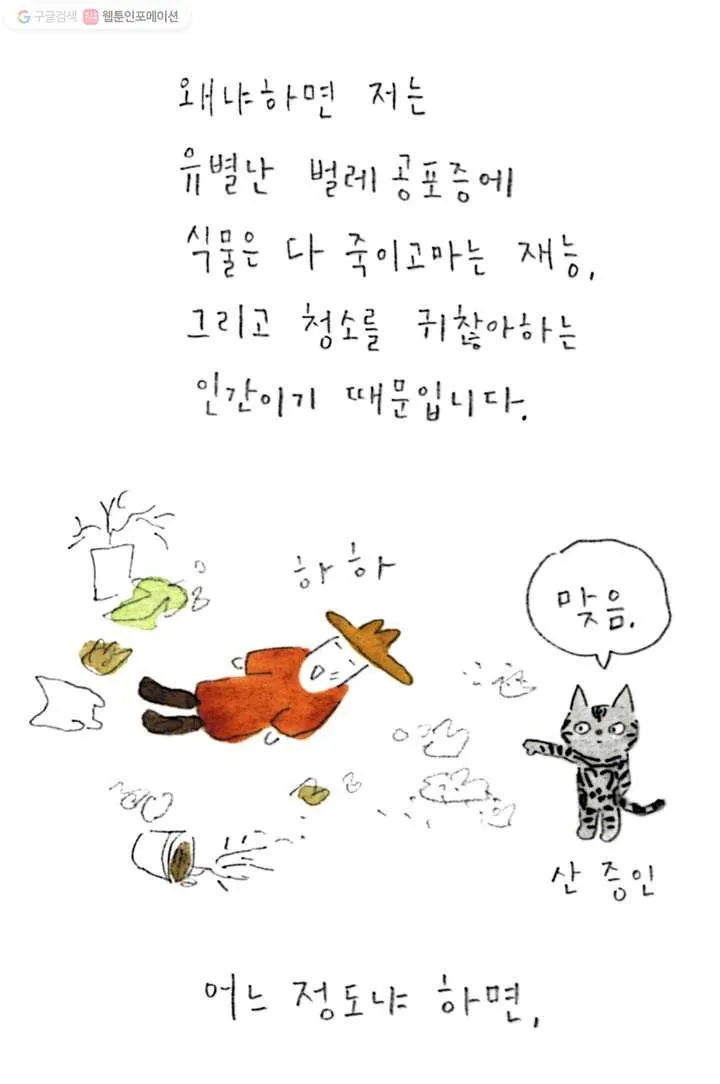 구글검색 웹툰인포메이션
왜냐하면 저는
유별난 벌레공포증에
식물은 다 죽이고마는 재능,
그리고 청소를 귀찮아하는
인간이기 때문입니다.
하하
맞음.
산 증인
어느 정도냐 하면,